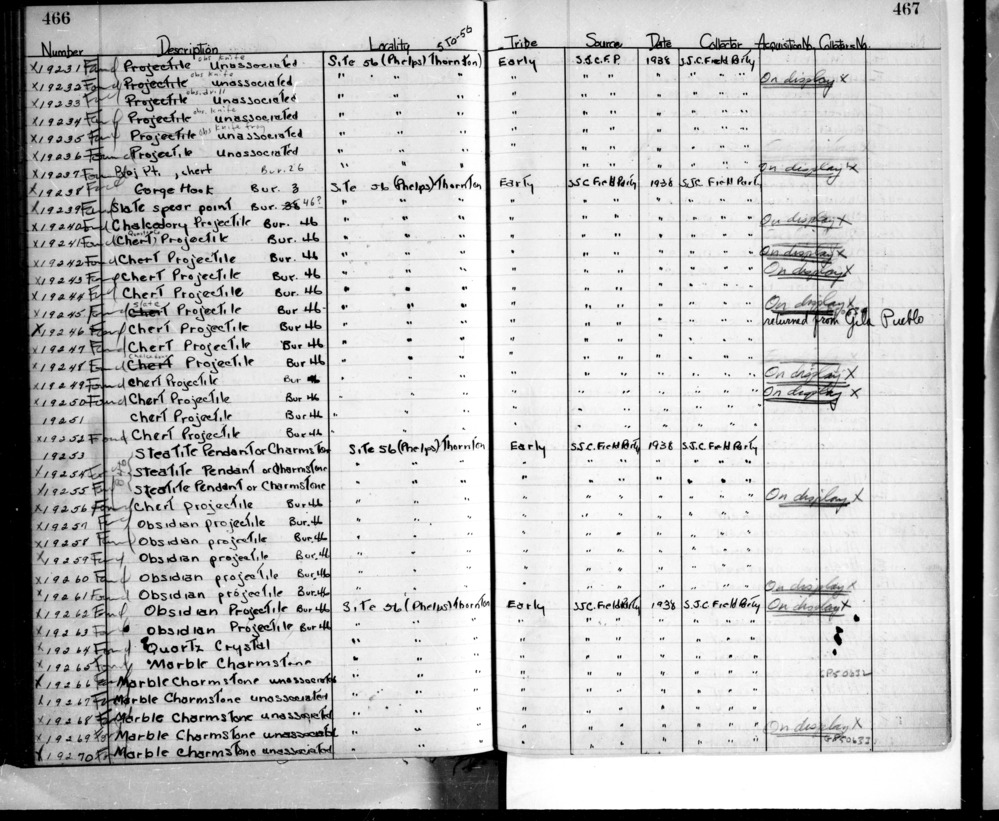 466
467
5 Sa-56
Number Description Locality Tribe Source Date Collector Acquisition No. Collector's No.
obs knife
X19231 Found Projectile Unassociated Site 56 (Phelps) Thornton) Early S.J.C.F.P. 1938 S.J.C. Field Party
obs knife
X19232 Found Projectile unassociated " " " " " " " " " " " On display X
obs. drill
X19233 Found Projectile Unassociated " " " " " " " " " " "
obs. knife
X19234 Found Projectile unassociated " " " " " " " " " " "
obs knife frag
X19235 Found Projectile unassociated " " " " " " " " " " "
X19236 Found Projectile unassociated " " " " " " " " " " "
X19237 Found Proj Pt., chert Bur. 26 " " " " " " " " " " " On display X
X19238 Found Gorge Hook Bur. 3 Site 56 (Phelps) Thornton Early SJC Field Party 1938 SJC Field Party
X19239 Found Slate spear point Bur. 38 46? " " " " " " " " " " "
X19240 Found Chalcedony Projectile Bur. 46 " " " " " " " " " " " On display X
X19241 Found (Chert) Projectile Bur. 46 " " " " " " " " " " "
X19242 Found Chert Projectile Bur. 46 " " " " " " " " " " " On display X
X19243 Found Chert Projectile Bur. 46 " " " " " " " " " " " On display X
X19244 Found Chert Projectile Bur. 46 " " " " " " " " " " "
slate
X19245 Found (Chert Projectile Bur 46 " " " " " " " " " " " On display X
X19246 Found Chert Projectile Bur 46 " " " " " " " " " " " returned from Gila Pueblo
X19247 Found Chert Projectile Bur 46 " " " " " " " " " " "
Chalcedony
X19248 Found Chert Projectile Bur 46 " " " " " " " " " " "
X19249 Found Chert Projectile Bur 46 " " " " " " " " " " " On display X
X19250 Found Chert Projectile Bur 46 " " " " " " " " " " " On display X
19251 Chert Projectile Bur 46 " " " " " " " " " " "
X19252 Found Chert Projectile Bur 46 " " " " " " " " " " "
19253 Steatite Pendant or Charmstone Site 56 (Phelps) Thornton Early S.J.C. Field Party 1938 S.J.C. Field Party
X19254 Found Steatite Pendant or Charmstone " " " " " " " " " " "
X19255 Found Steatite Pendant or Charmstone " " " " " " " " " " "
X19256 Found Chert projectile Bur. 46 " " " " " " " " " " " On display X
X19257 Found Obsidian projectile Bur. 46 " " " " " " " " " " "
X19258 Found Obsidian projectile Bur. 46 " " " " " " " " " " "
X19259 Found Obsidian projectile Bur. 46 " " " " " " " " " " "
X19260 Found Obsidian projectile Bur. 46 " " " " " " " " " " "
X19261 Found Obsidian projectile Bur. 46 " " " " " " " " " " " On display X
X19262 Found Obsidian Projectile Bur. 46 Site 56 (Phelps) Thornton Early SJC. Field Party 1938 S.J.C Field Party On display X
X19263 Found Obsidian Projectile Bur 46 " " " " " " " " " " "
X19264 Found Quartz Crystal " " " " " " " " " " "
X19265 Found Marble Charmstone " " " " " " " " " " "
X19266 Found Marble Charmstone unassociated " " " " " " " " " " "
X19267 Found Marble Charmstone unassociated " " " " " " " " " " "
X19268 Found Marble Charmstone unassociated " " " " " " " " " " "
X19269 Found Marble Charmstone unassociated " " " " " " " " " " " On display X
X19270 Found Marble Charmstone unassociated " " " " " " " " " " "